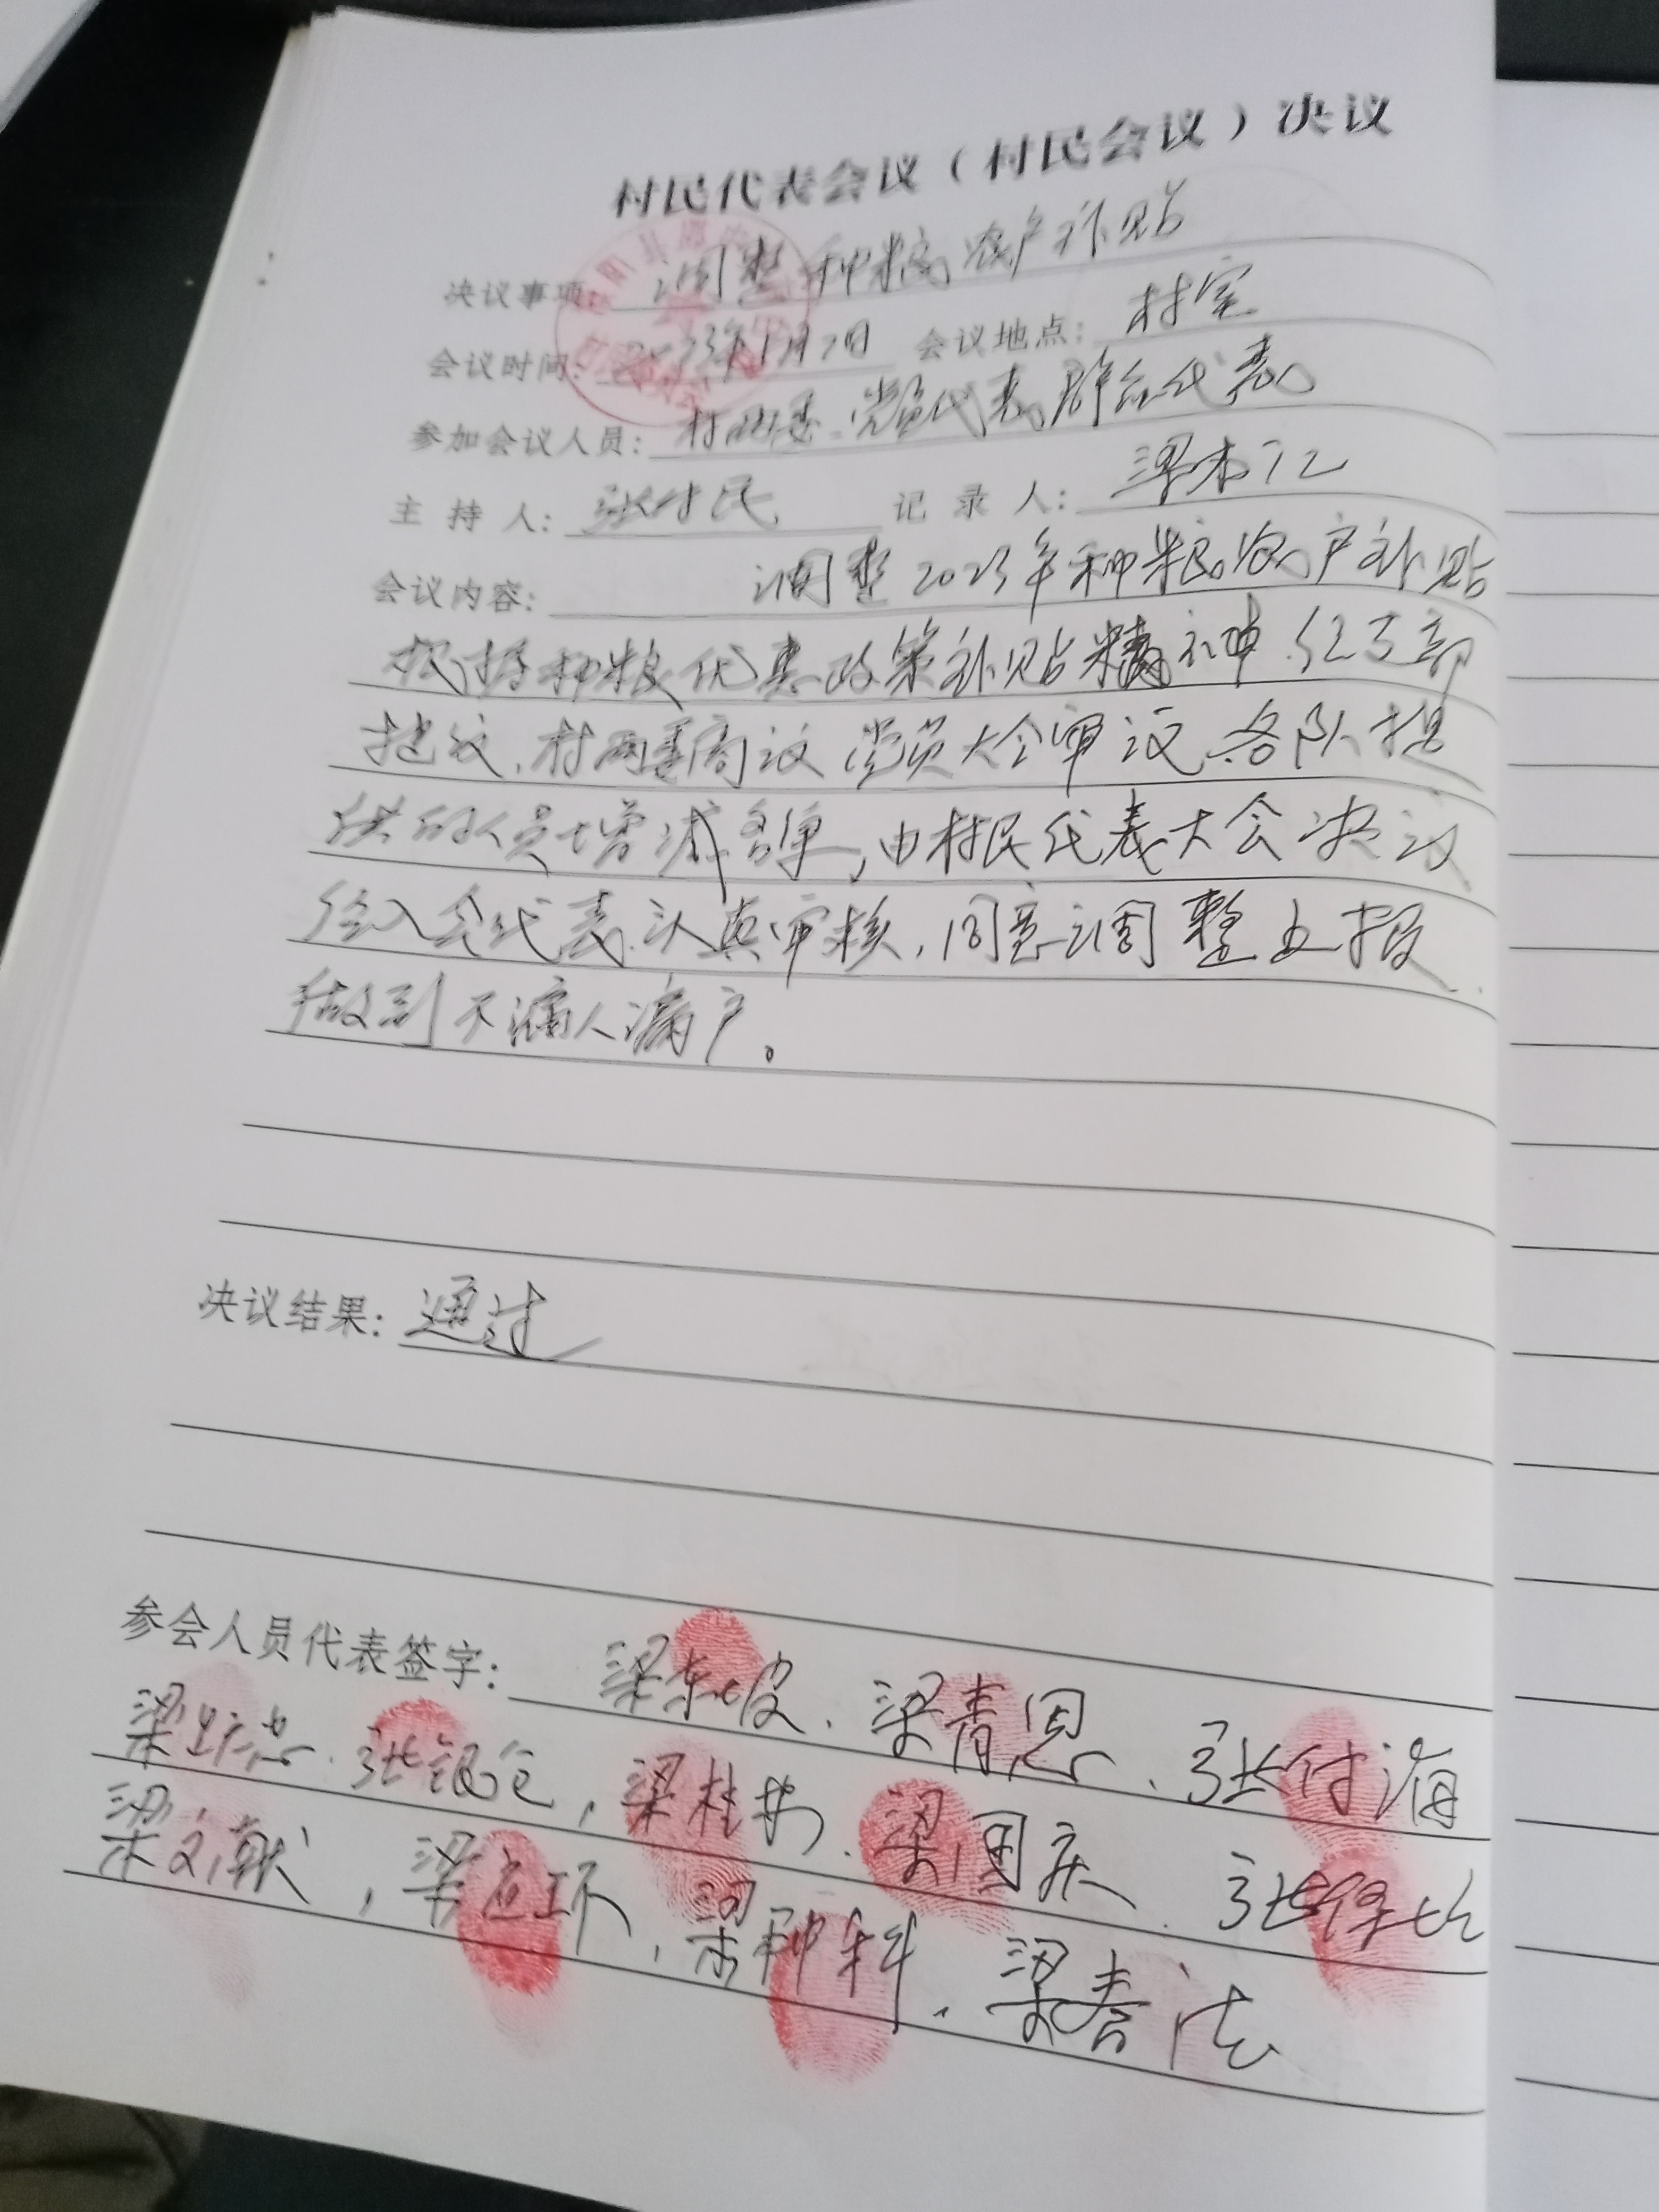 村民代表会议（村民会议）决议
决议事项：调整种粮农户补贴
会议时间：2023年1月7日 会议地点：村室
参加会议人员：村两委、党员代表、群众代表
主持人：张才民 记录人：梁
会议内容：调整2023年种粮农户补贴
根据种粮优惠政策补贴精神.经支部
提议,村两委商议 党员大会审议 各队提
供的人员增减名单,由村民代表大会决议
经入会代表认真审核,同意调整上报
做到不漏人漏户。
决议结果：通过
参会人员代表签字：梁东坡、梁青恩、张付海
梁 张银仓,梁桂 、梁国庆、张保
梁文献,梁 环,梁种科、梁春法